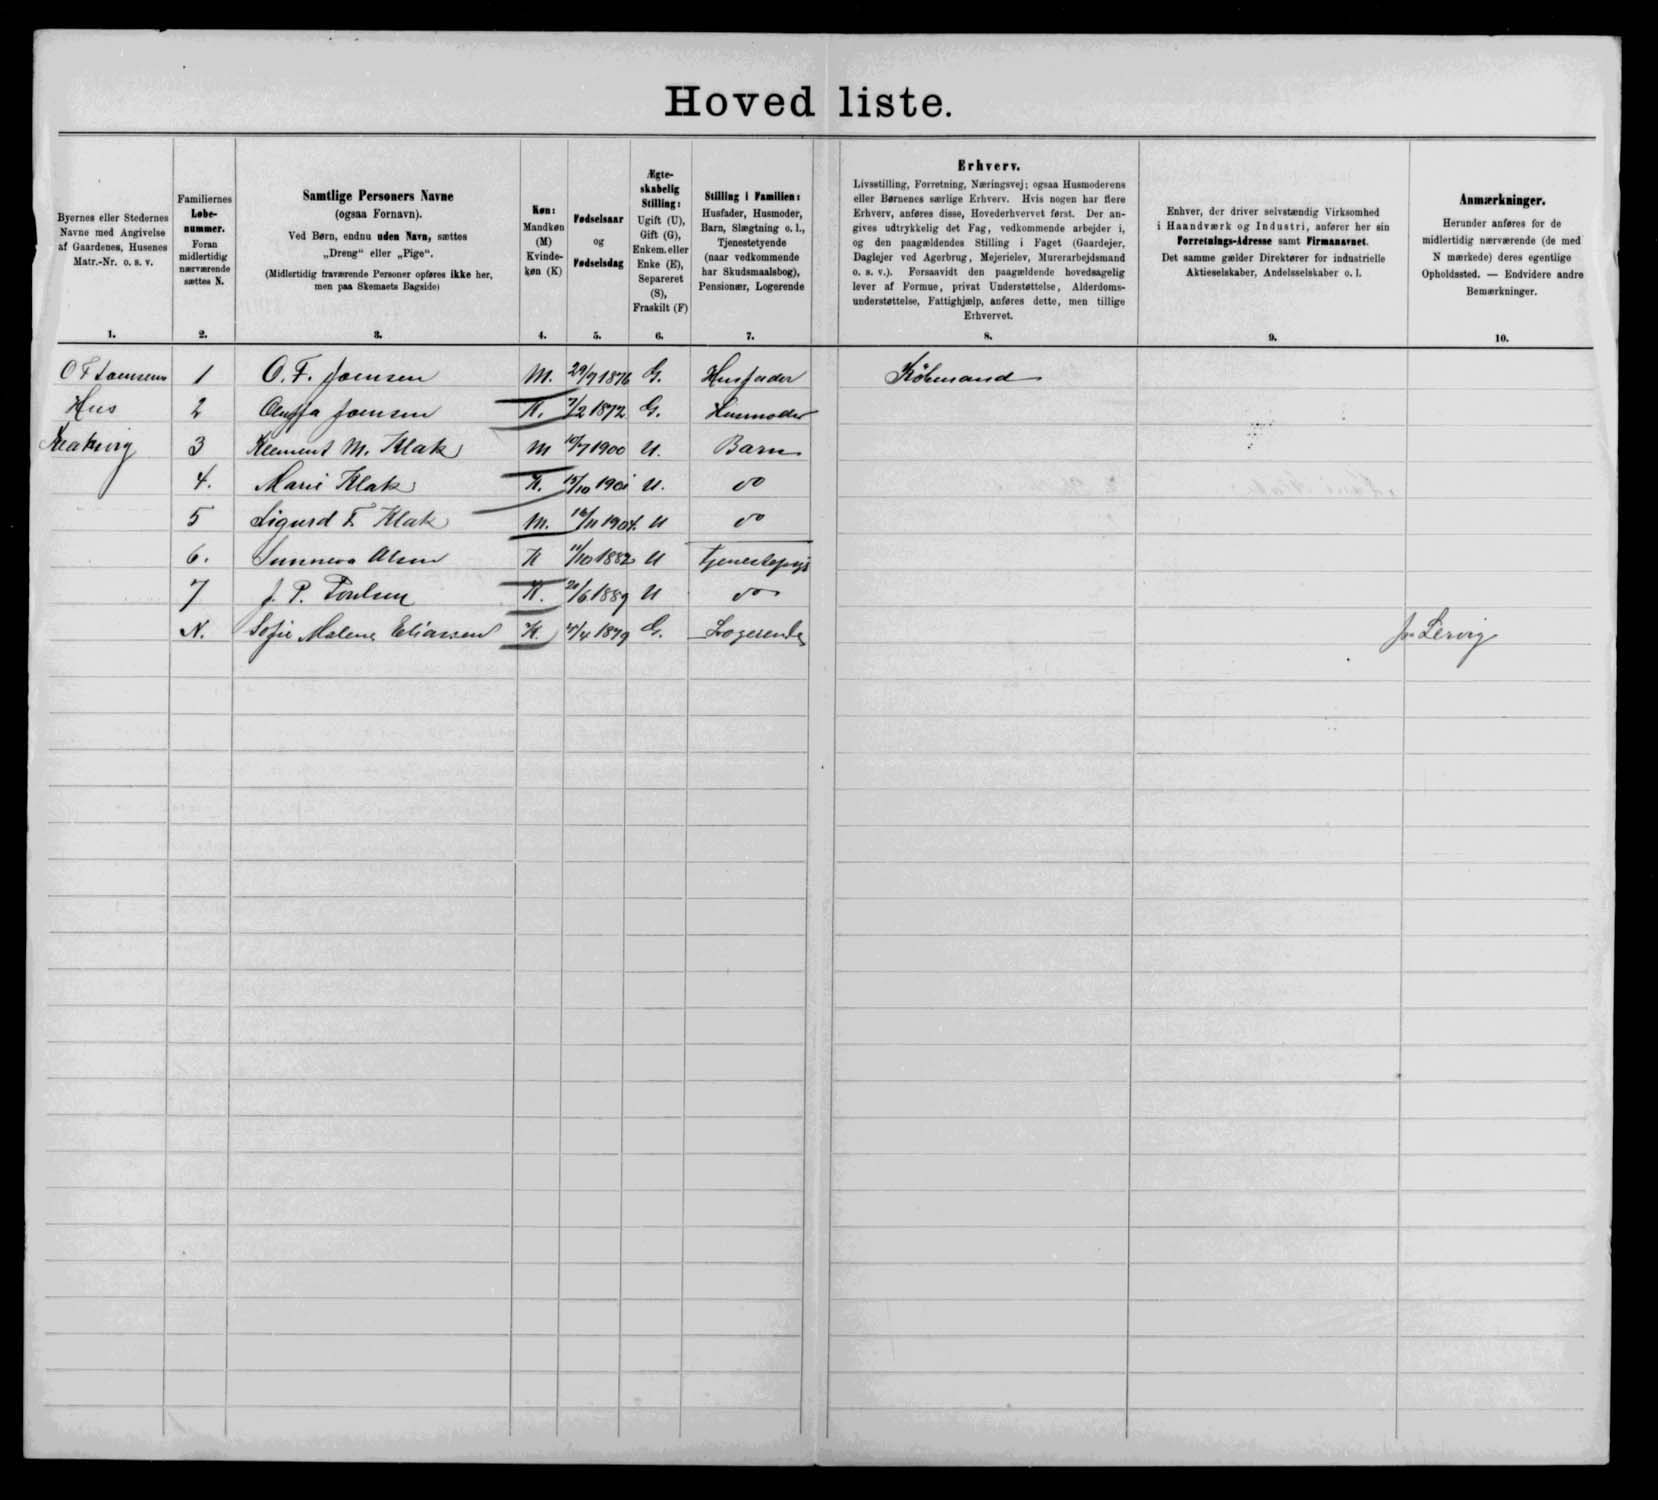 Hoved liste.
Byernes eller Stedernes
Navne med Angivelse
af Gaardenes, Husenes
Matr.-Nr. o. s. v.
1.
Familiernes
Løbe-
nummer.
Foran
midlertidig
nærværende
sættes N.
2.
Samtlige Personers Navne
(ogsaa Fornavn).
Ved Børn, endnu uden Navn, sættes
„Dreng“ eller „Pige“.
(Midlertidig fraværende Personer opføres ikke her,
men paa Skemaets Bagside)
3.
Køn:
Mandkøn
(M)
Kvinde-
køn (K)
4.
Fødselsaar
og
Fødselsdag
5.
Ægte-
skabelig
Stilling:
Ugift (U),
Gift (G),
Enkem. eller
Enke (E),
Separeret
(S),
Fraskilt (F)
6.
Stilling i Familien:
Husfader, Husmoder,
Barn, Slægtning o. l.,
Tjenestetyende
(naar vedkommende
har Skudsmaalsbog),
Pensionær, Logerende
7.
Erhverv.
Livsstilling, Forretning, Næringsvej; ogsaa Husmoderens
eller Børnenes særlige Erhverv. Hvis nogen har flere
Erhverv, anføres disse, Hovederhvervet først. Der an-
gives udtrykkelig det Fag, vedkommende arbejder i,
og den paagældendes Stilling i Faget (Gaardejer,
Daglejer ved Agerbrug, Mejerielev, Murerarbejdsmand
o. s. v.). Forsaavidt den paagældende hovedsagelig
lever af Formue, privat Understøttelse, Alderdoms-
understøttelse, Fattighjælp, anføres dette, men tillige
Erhvervet.
8.
Enhver, der driver selvstændig Virksomhed
i Haandværk og Industri, anfører her sin
Forretnings-Adresse samt Firmanavnet.
Det samme gælder Direktører for industrielle
Aktieselskaber, Andelsselskaber o. l.
9.
Anmærkninger.
Herunder anføres for de
midlertidig nærværende (de med
N mærkede) deres egentlige
Opholdssted. — Endvidere andre
Bemærkninger.
10.
O F Joensens 1 O. F. Joensen M. 29/9 1876 G. Husfader Købmand
Hus 2 Joensen K. 7/2 1872 G. Husmoder
3 Klement M. Klak M 10/7 1900 U. Barn
4. Marie Klak K. 15/10 1901 U. do
5 Sigurd F. Klak M. 16/11 1904. U do
6. Sunneva Olsen K 11/10 1882 U Tjenestepige
7 J. P. Poulsen K. 20/6 1889 U do
N. Sofie Malene Eliassen K. /4 1879 G. Logerende Lervig